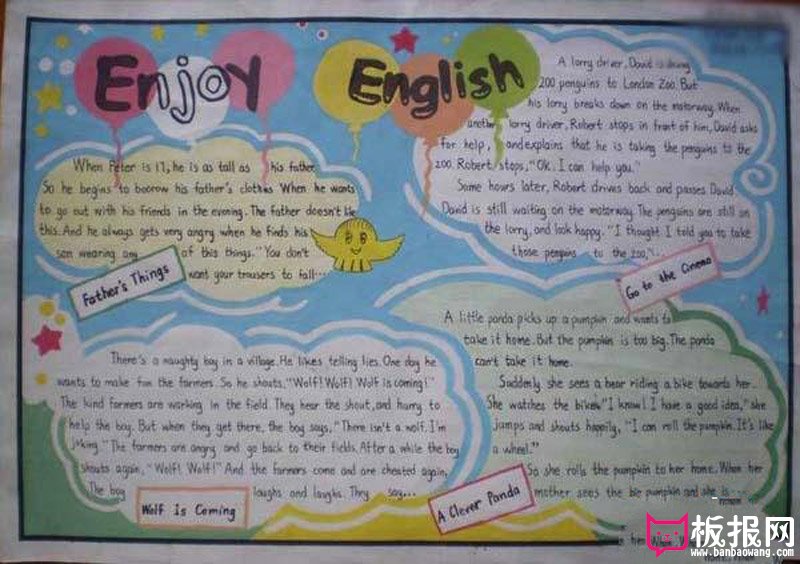 Enjoy English
When Peter is 17, he is as tall as his father.
So he begins to boorow his father's clothes When he wants
to go out with his friends in the evening. The father doesn't like
this. And he always gets very angry when he finds his
son wearing any of this things. "You don't
want your trousers to fall...
Father's Things
A lorry driver, David is driving
200 penguins to London Zoo. But
his lorry breaks down on the motorway. When
another lorry driver, Robert stops in front of him, David asks
for help, and explains that he is taking the penguins to the
zoo. Robert stops, "Ok. I can help you."
Some hours later, Robert drives back and passes David
David is still waiting on the motorway. The penguins are still on
the lorry, and look happy. "I thought I told you to take
those penguins to the zoo,"
Go to the Cinema
There's a naughty boy in a village. He likes telling lies. One day he
wants to make fun the farmers. So he shouts, "Wolf! Wolf! Wolf is coming!"
The kind farmers are working in the field. They hear the shout, and hurry to
help the boy. But when they get there, the boy says, "There isn't a wolf. I'm
joking." The farmers are angry and go back to their fields. After a while the boy
shouts again, "Wolf! Wolf!" And the farmers come and are cheated again.
The boy laughs and laughs. They say...
Wolf Is Coming
A little panda picks up a pumpkin and wants to
take it home. But the pumpkin is too big. The panda
can't take it home.
Suddenly she sees a bear riding a bike towards her.
She watches the bike. "I know! I have a good idea," she
jumps and shouts happily, "I can roll the pumpkin. It's like
a wheel."
So she rolls the pumpkin to her home. When her
mother sees the bie pumpkin and she is...
A Clever Panda
板报网
www.banbaowang.com